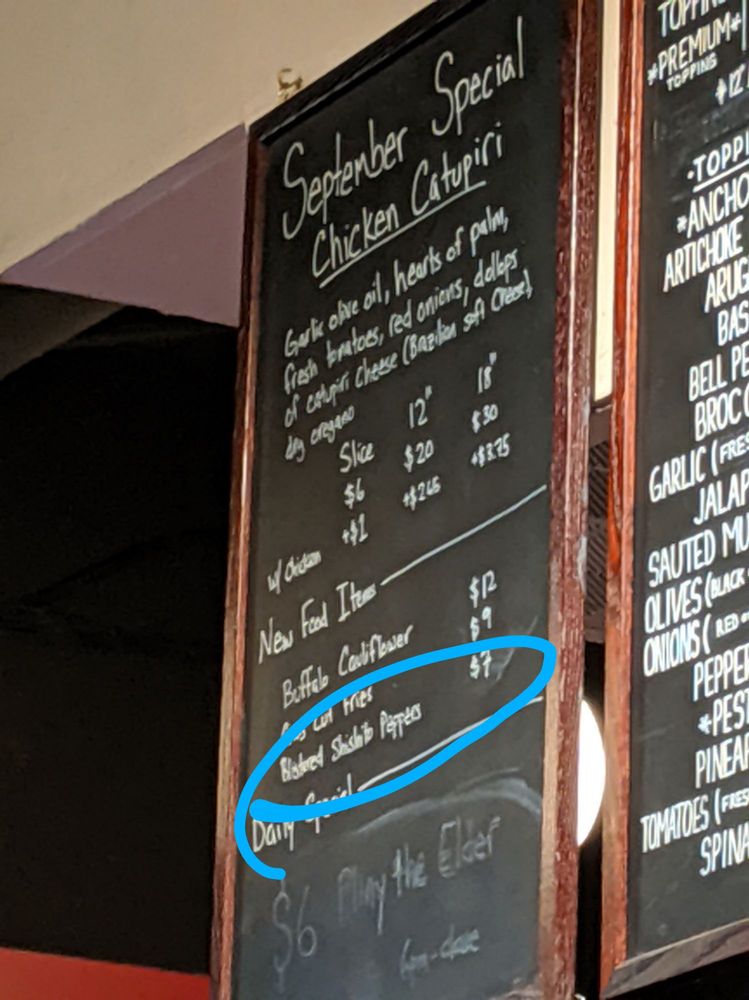 September Special
Chicken Catupiri
Garlic olive oil, hearts of palm,
fresh tomatoes, red onions, dollops
of catupiri cheese (Brazilian soft cheese),
dry oregano
Slice 12" 18"
$6 $20 $30
w/ chicken +$1 +$2.65 +$3.75
New Food Items
Buffalo Cauliflower $12
Cut Fries $9
Blistered Shishito Peppers $7
Daily Special
$6 Pliny the Elder
6pm-close
TOPPIN
*PREMIUM*
TOPPING
+12"
-TOPPI
*ANCHO
ARTICHOKE
ARUG
BAS
BELL PE
BROCC
GARLIC (FRES
JALAP
SAUTED MU
OLIVES (BLACK
ONIONS (RED O
PEPPER
*PEST
PINEAP
TOMATOES (FRES
SPINA